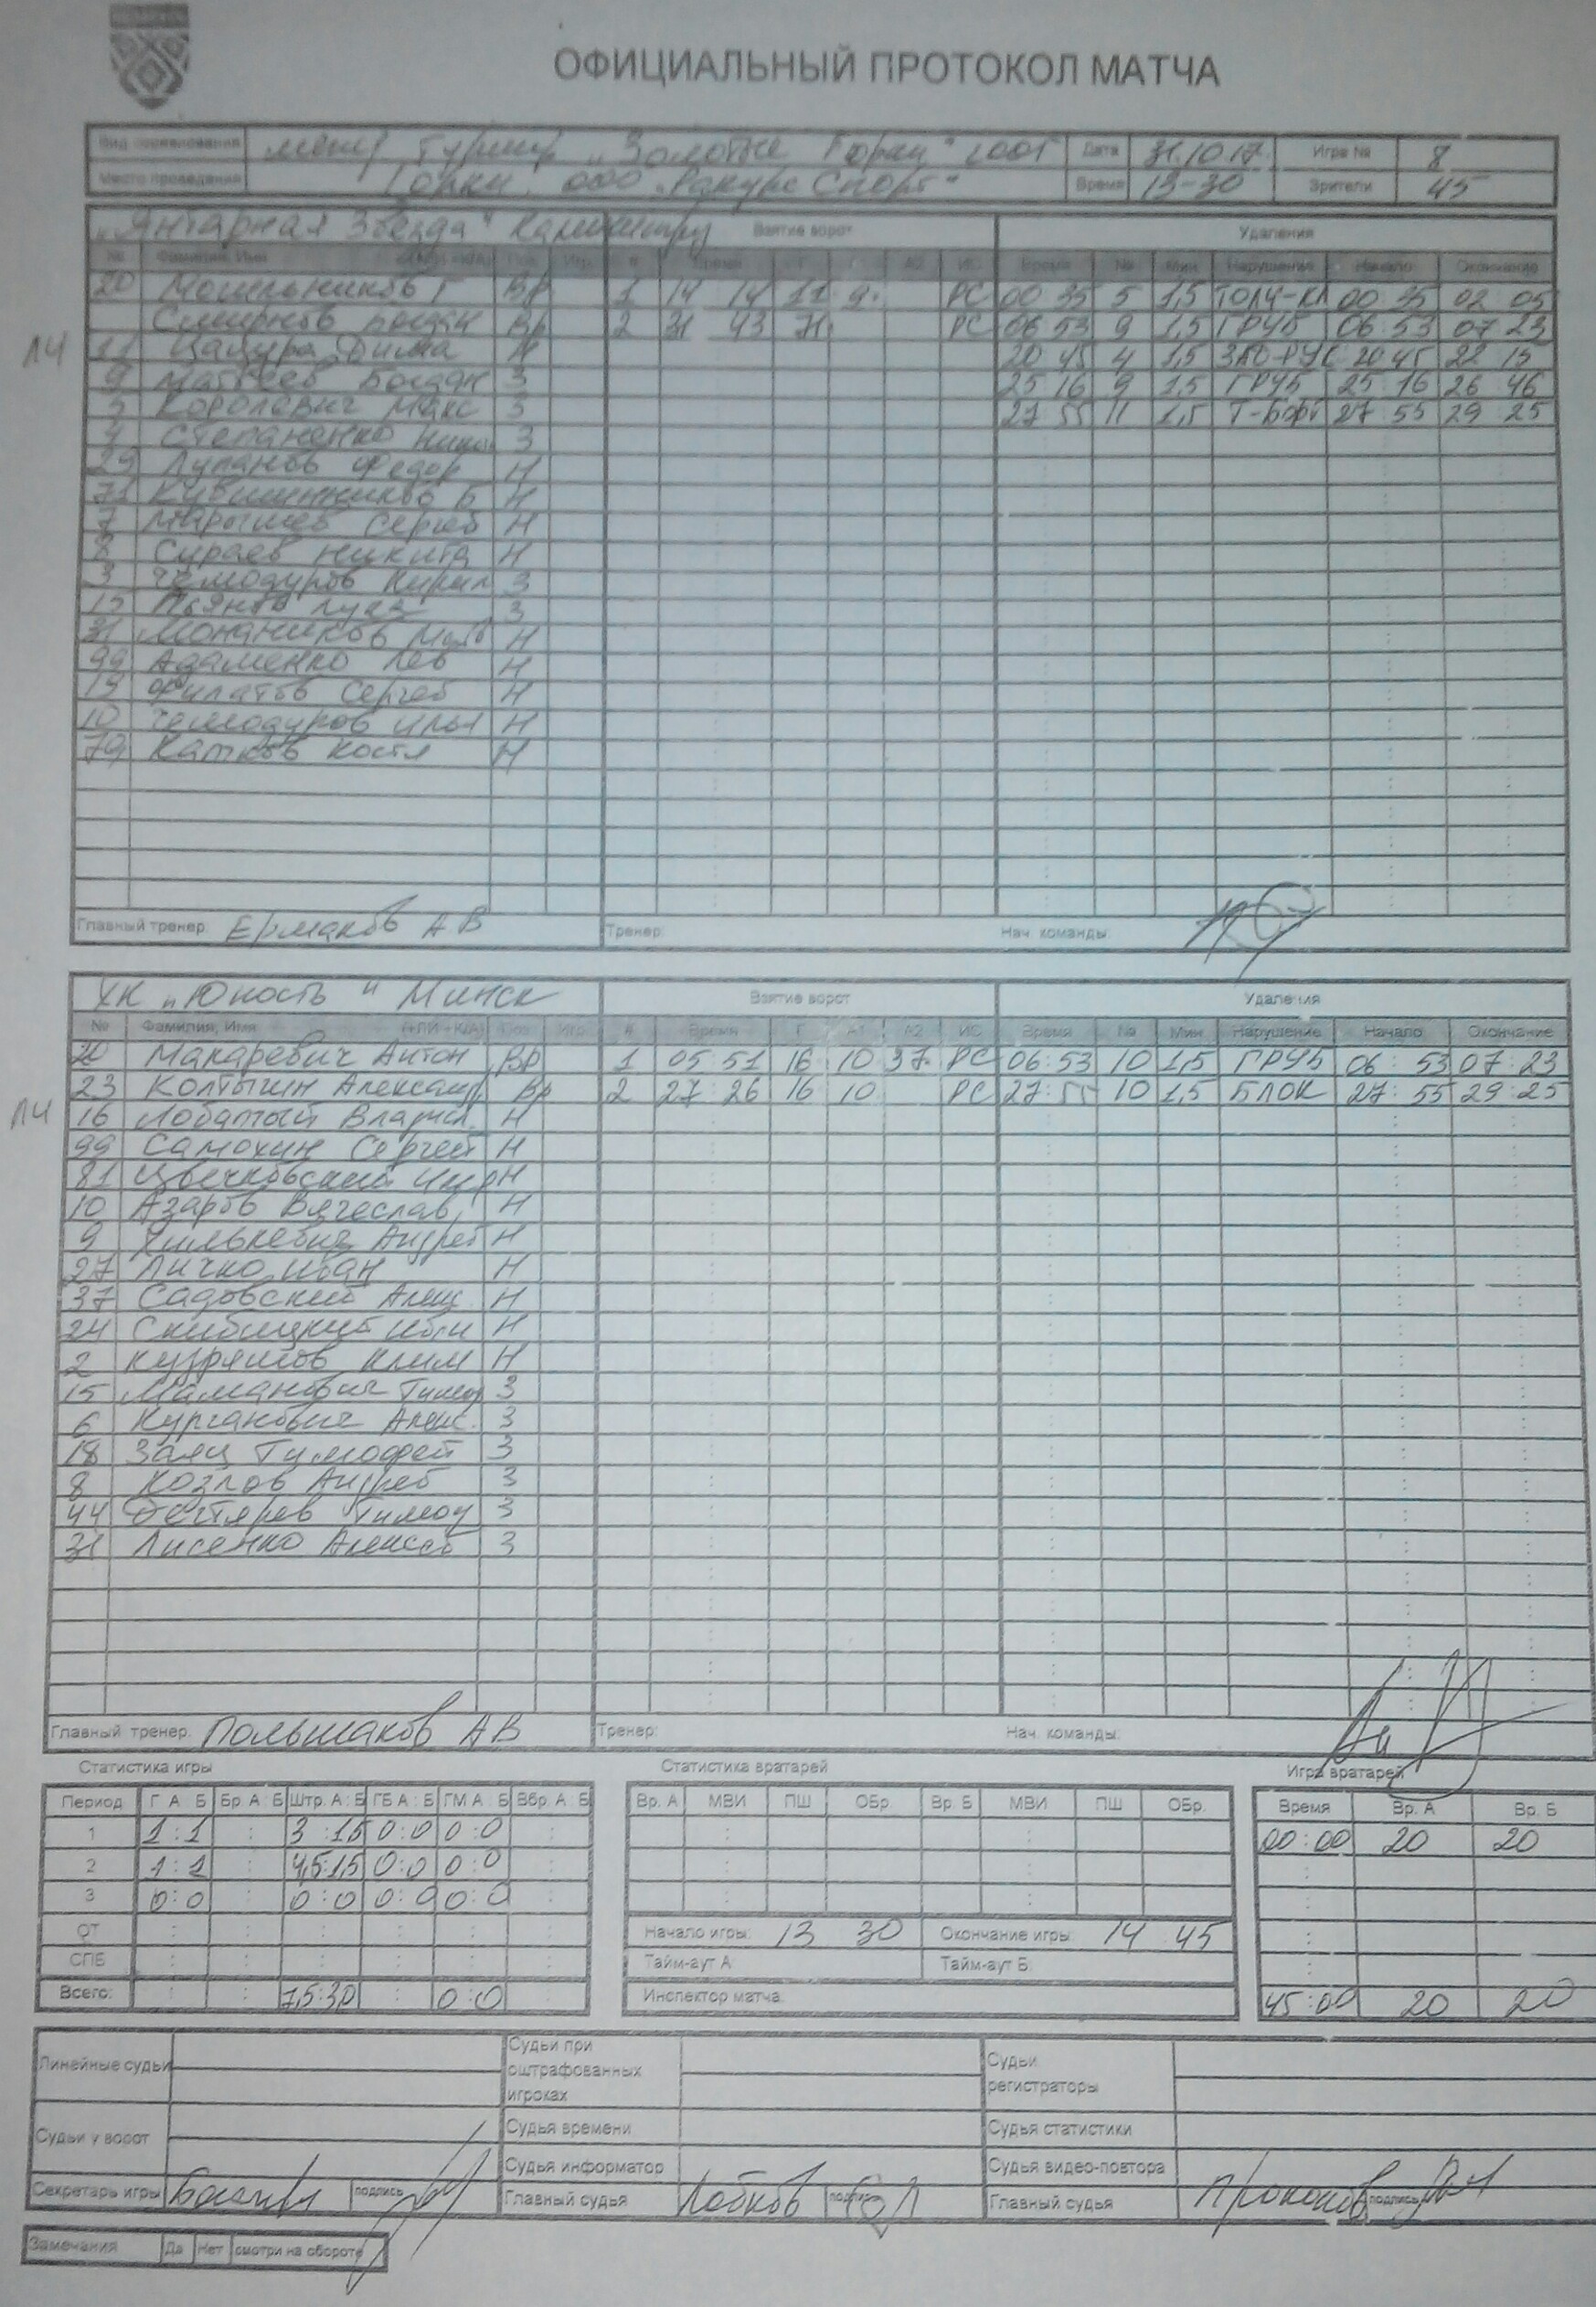 ОФИЦИАЛЬНЫЙ ПРОТОКОЛ МАТЧА
Вид соревнования Турнир „Золотые Горки" Дата 31.10.17. Игра № 8
Место проведения Горки ООО „Ракурс Спорт" Время 13-30 Зрители 45
„Янтарная Звезда" Взятие ворот Удаления
№ Фамилия, Имя Поз Игр # Время Г А2 ИС Время № Мин Нарушение Начало Окончание
20 Вр 1 14 14 11 9. РС 00 35 5 1,5 ТОЛЧ-КЛ 00 35 02 05
Смирнов Богдан Вр 2 31 43 71. РС 06 53 9 1,5 ГРУБ 06 53 07 23
ЛЧ 11 Цацура Дима Н 20 45 4 1,5 20 45 22 15
9 Матвеев Богдан З 25 16 9 1,5 ГРУБ 25 16 26 46
5 Королевич Макс З 27 55 11 1,5 Т-Борт 27 55 29 25
4 Степаненко З
29 Лупанов Федор Н
71 Н
7 Сергей Н
8 Сураев Никита Н
3 Чемодуров Кирил З
15 Лука З
31 Н
99 Адаменко Лев Н
19 Филатов Сергей Н
10 Чемодуров Илья Н
79 Катков Костя Н
Главный тренер: Ермаков А В Тренер: Нач. команды:
ХК „Юность" Минск Взятие ворот Удаления
№ Фамилия, Имя Поз Игр # Время Г А1 А2 ИС Время № Мин Нарушение Начало Окончание
20 Макаревич Антон Вр 1 05 51 16 10 37 РС 06:53 10 1,5 ГРУБ 06:53 07:23
23 Колтыгин Александр Вр 2 27:26 16 10 РС 27:55 10 1,5 БЛОК 27:55 29:25
ЛЧ 16 Лобатый Н
99 Самохин Сергей Н
81 Н
10 Азаров Вячеслав Н
9 Андрей Н
27 Личко Иван Н
37 Садовский Алекс. Н
24 Скибицкий Н
2 Клим Н
15 Маманович Тимоф З
6 Курганович Алекс. З
18 Заяц Тимофей З
8 Козлов Андрей З
44 Дегтярев Тимоф З
31 Лисенко Алексей З
Главный тренер: Польшаков АВ Тренер: Нач. команды:
Статистика игры Статистика вратарей Игра вратарей
Период Г А Б Бр А : Б Штр. А : Б ГБ А : Б ГМ А : Б Вбр. А : Б Вр. А МВИ ПШ ОБр. Вр. Б МВИ ПШ ОБр. Время Вр. А Вр. Б
1 1:1 3:1,5 0:0 0:0 00:00 20 20
2 1:1 4,5:1,5 0:0 0:0
3 0:0 0:0 0:0 0:0
ОТ Начало игры: 13 30 Окончание игры: 14 45
СПБ Тайм-аут А: Тайм-аут Б:
Всего: 7,5:3,0 0:0 Инспектор матча: 45:00 20 20
Линейные судьи Судьи при оштрафованных игроках Судьи регистраторы
Судьи у ворот Судья времени Судья статистики
Судья информатор Судья видео-повтора
Секретарь игры подпись Главный судья Лобков подпись Главный судья подпись
Замечания Да Нет смотри на обороте